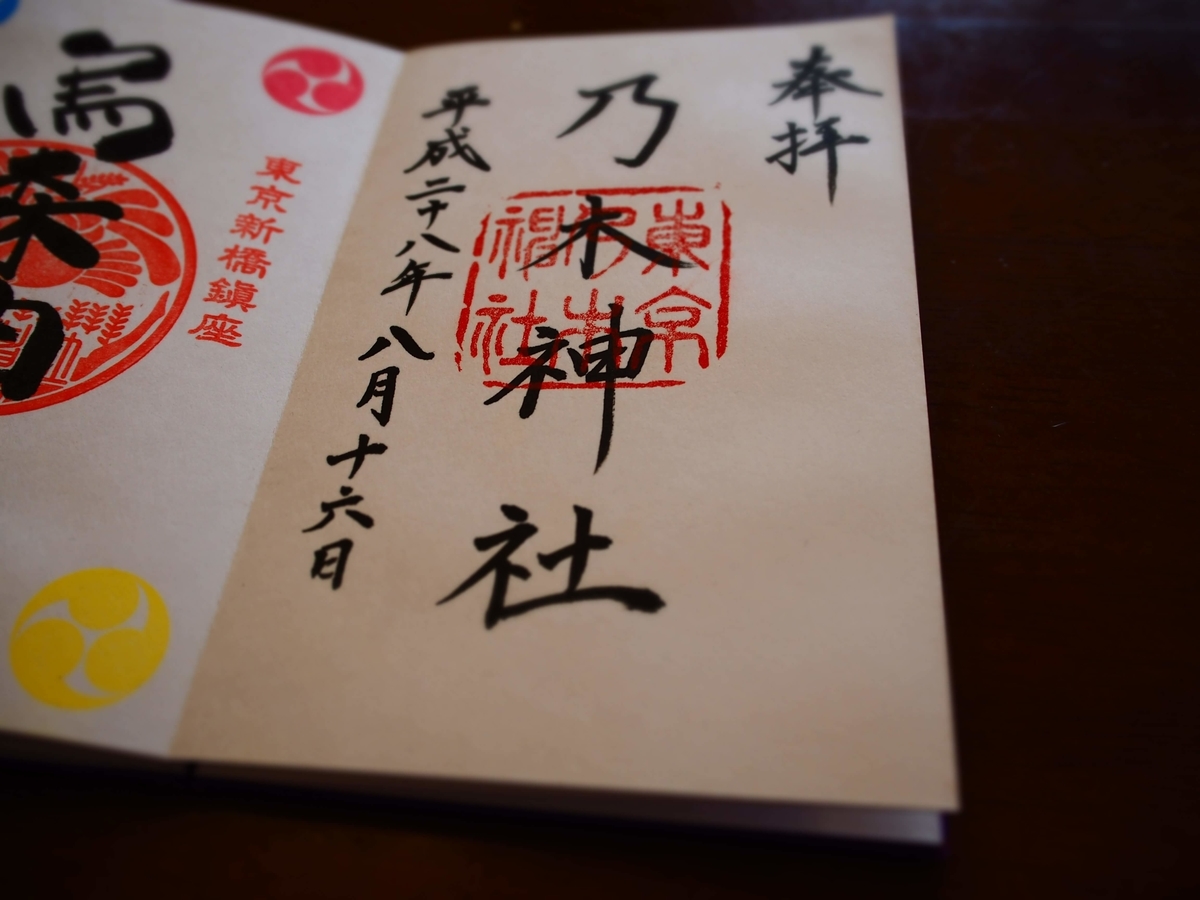 奉拝
乃木神社
東京
乃木
神社
平成二十八年八月十六日
東京新橋鎮座
烏森